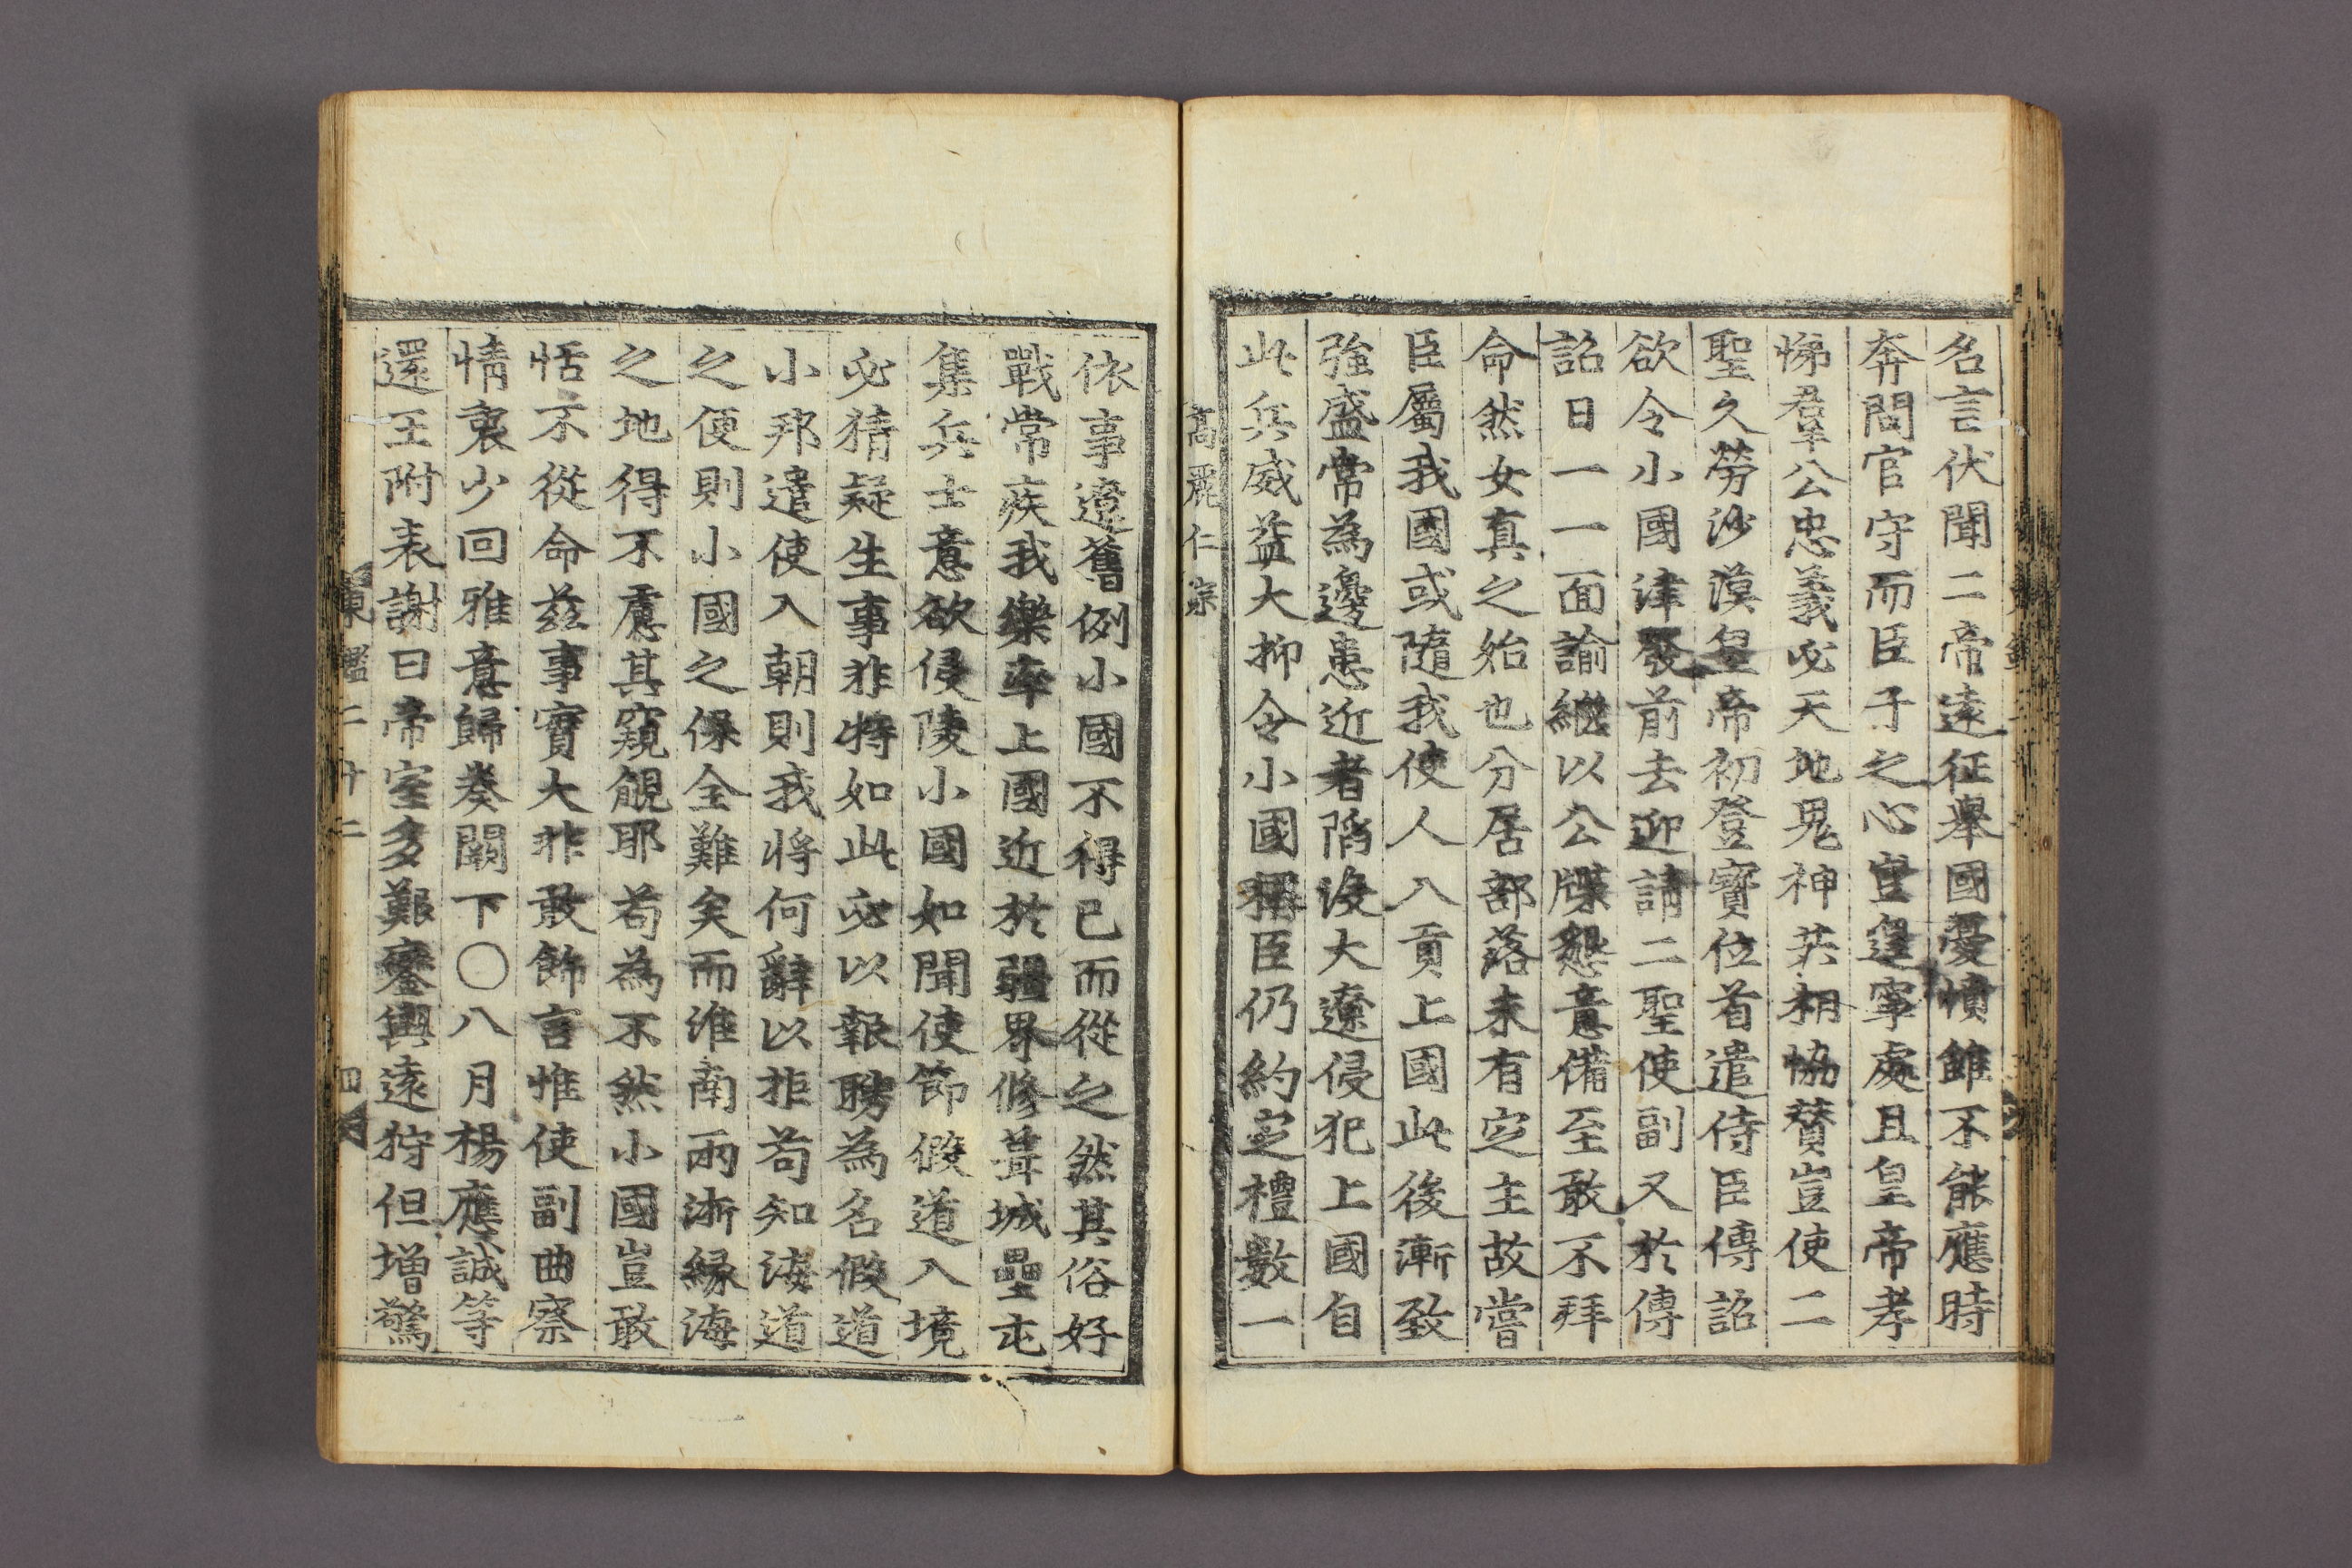 名言伏聞二帝遠征舉國憂憤雖不能應時
奔問官守而臣子之心豈遑寧處且皇帝孝
悌羣公忠義必天地鬼神共相恊賛豈使二
聖久勞沙漠皇帝初登寶位首遣侍臣傳詔
欲令小國津發前去迎請二聖使副又於傳
詔日一一面諭繼以公牒懇意備至敢不拜
命然女真之始也分居部落未有定主故嘗
臣屬我國或隨我使人入貢上國此後漸致
強盛常為邊患近者陷沒大遼侵犯上國自
此兵威益大抑令小國稱臣仍約定禮數一
高麗仁宗
依事遼舊例小國不得已而從之然其俗好
戰常疾我樂率上國近於疆界修葺城壘屯
集兵士意欲侵陵小國如聞使節假道入境
必猜疑生事非特如此必以報聘為名假道
小邦遣使入朝則我將何辭以拒苟知海道
之便則小國之保全難矣而淮南兩浙緣海
之地得不慮其窺覦耶苟為不然小國豈敢
恬不從命兹事實大非敢飾言惟使副曲察
情衷少回雅意歸奏闕下○八月楊應誠等
還王附表謝曰帝室多艱鑾輿遠狩但增驚
東鑑二十二
四